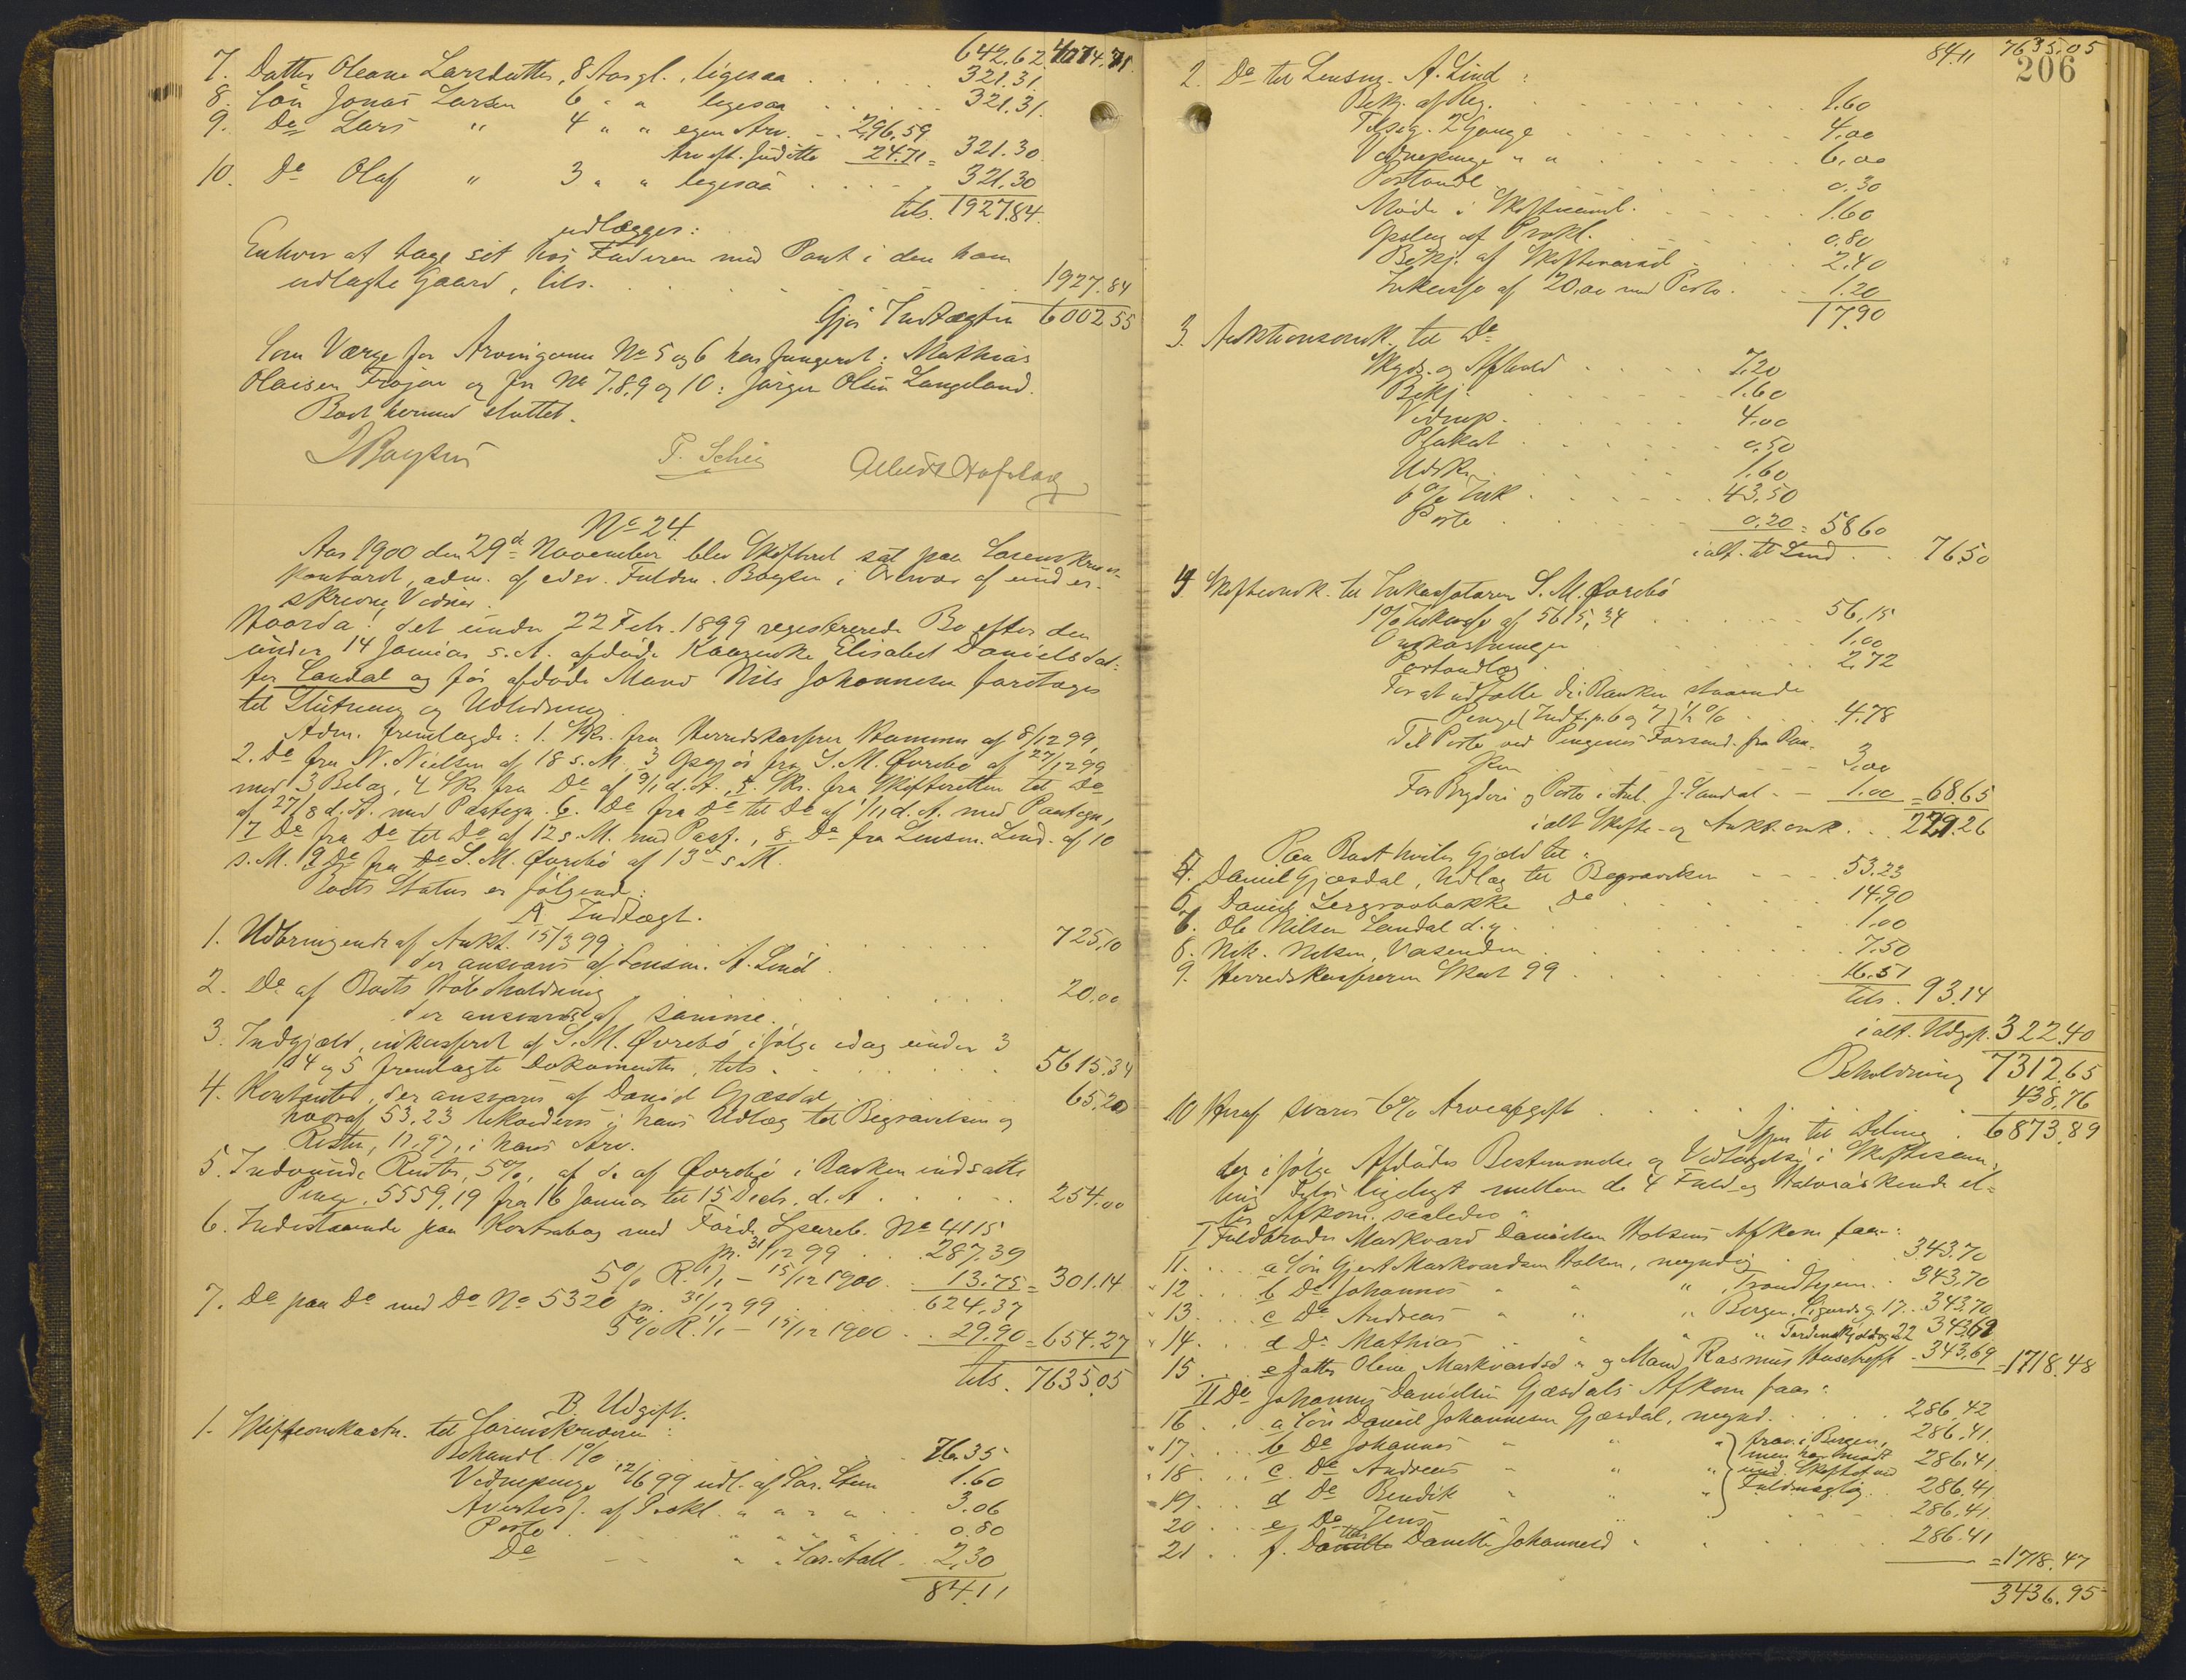 642.62 4074.71
7. Datter Oleane Larsdatter, 8 Aar gl., ligesaa . . . 321.31.
8. Søn Jonas Larsen 6 " " ligesaa . . . 321.31.
9. Do Lars " 4 " " egen Arv. . . 296.59
Arv eft. Juditte 24.71 = 321.30
10. Do Olaf " 3 " " ligesaa . . . 321.30
tils. 1927.84.
udlægges:
Enhver at tage sit hos Faderen med Pant i den ham
udlagte Gaard, tils. . . . 1927.84
Gjør Indtægten 6002.55
Som Værge for Arvingerne No 5 og 6 har fungeret: Mathias
Olaisen Frøjen og for No 7.8.9 og 10: Jørgen Olsen Langeland.
Boet hermed sluttet.
P. Schei
No 24.
Aar 1900 den 29de November blev Skifteret sat paa Sorenskriver-
kontoret, adm. af edsv. Fuldm. Bøgsen i Overvær af under-
skrevne Vidner.
Hvorda: det under 22 Febr. 1899 registrerede Bo efter den
under 14 Januar s. A. afdøde Kaarenke Elisabet Danielsdat-
ter Sandal og før afdøde Mand Nils Johannesen foretages
til Slutning og Udlodning.
Adm. fremlagde: 1. Skr. fra Herredskasserer Hammer af 8/12 99,
2. Do fra N. Nielsen af 18 s. M. 3 Opgjør fra S. M. Øvrebø af 27/12 99
med 3 Bilag, 4 Skr. fra Do af 9/1 d. A. 5. Skr. fra Skifteretten til Do
af 27/8 d. A. med Paategn. 6. Do fra Do til Do af 1/11 d. A. med Paategn,
7 Do fra Do til Do af 12 s. M. med Paat., 8. Do fra Lensm. Lind. af 10
s. M. 9 Do fra S. M. Øvrebø af 13de s. M.
Boets Status er følgende:
A. Indtægt.
1. Udbringende af Aukt. 15/3 99 . . . 725,10
der ansvares af Lensm. A. Lind.
2. Do af Boets Løbeholdning . . . 20.00
der ansvares af samme.
3. Indgjæld, inkasseret af S. M. Øvrebø ifølge idag under 3
4 og 5 fremlagte Dokumenter, tils. . . . 5615.34
4. Kontanter, der ansvares af Daniel Gjæsdal . . . 65,20
hvoraf 53.23 likvideres i hans Udlæg til Begravelsen og
Resten, 11.97, i hans Arv.
5. Indvundne Renter, 5%, af de af Øvrebø i Banken indsatte
Penge. 5559,19 fra 16 Januar til 15 Decb. d. A . . . 254.00
6. Indestaaende paa Kontrabog med Førde Spareb. No 4115
pr. 31/12 99 . . . 287,39
5% R. 1/1 - 15/12 1900 . . 13.75 = 301.14
7. Do paa Do med Do No 5320 pr. 31/12 99 . . . 624,37
5% R. 1/1 - 15/12 1900 . . 29.90 = 654.27
tils. 7635.05
B. Udgift.
1. Skifteomkostn. til Sorenskriveren:
Behandl. 1% . . . 76.35
Vidnepenge 12/6 99 udl. af Sor. Stem 1.60
Avertiss. af Prokl. " " " " . . 3.06
Porto . . . " " " " . . 0.80
Do " " Sor. Aall . . 2,30
84.11
84.11 7635,05
206
2. Do til Lensm. A. Lind:
Bekj. af Reg. . . . 1.60
Tilsig. 2 Gange . . . 4.00
Vidnepenge " " . . . 6.00
Portoudl . . . 0.30
Møde i Skiftesaml. . . . 1.60
Opslag af Prokl. . . . 0.80
Bekj. af Skiftevarsel . . . 2.40
Inkasso af 20,00 med Porto . . 1.20
17.90
3. Auktionsomk. til Do
Skyds. og Afhold . . . 7.20
Bekj. . . . 1.60
Vidnep. . . . 4.00
Plakat . . . 0.50
Udskr. . . . 1.60
6% Ink . . . 43.50
Porto . . . 0.20 = 58.60
ialt til Lind . . 76.50
4. Skifteomk. til Inkassatoren S. M. Øvrebø
1% Inkasso af 5615,34 . . . 56,15
Omkostninger . . . 1.00
Portoudlæg . . . 2.72
For at udtælle de i Banken staaende
Penge (Indt. p. 6 og 7) ½% . . . 4.78
Til Porto ved Pengenes Forsend. fra Ban-
ken . . . 3,00
For Bryderi og Porto i Anl. J. Sandal - - 1.00 = 68.65
ialt Skifte- og Aukt. omk. . . 229.26
Paa Boet hviler Gjæld til:
5. Daniel Gjæsdal, Udlæg til Begravelsen - - - 53.23
6. Daniel Lergrovbakke Do . . . 14.90
7. Ole Nilsen Sandal d. y. . . . 1,00
8. Nik. Nilsen Vasenden . . . 7.50
9. Herredskassereren Skat 99 . . . 16.51
tils. 93.14
ialt Udgift. 322.40
Beholdning 7312.65
10 Heraf svares 6% Arveafgift . . . 438,76
Igjen til Deling . 6873.89
der ifølge Afdødes Bestemmelse og Vedtagelse i Skiftesam-
ling deles ligeligt mellem de 4 Fuld- og Halvsøskende el-
ler Afkom. saaledes:
I Fuldbroder Markvard Danielsen Holsens Afkom faar:
11. . . . a Søn Gjert Markvardsen Holsen, myndig . . 343.70
" 12 . . . b Do Johannes " " " Trondhjem . . 343,70
" 13 . . . c Do Andreas " " " Bergen, Sigurdsg. 17 . . 343,70
" 14 . . d Do Mathias " " " Tordenskjoldsgd 22 343,69
15. . . e Datter Oline Markvardsd " og Mand Rasmus Husetuft - 343,69 = 1718.48
II Do Johannes Danielsen Gjæsdals Afkom faar:
16 . . . a Søn Daniel Johannesen Gjæsdal, mynd. . . . 286,42
" 17. . . . b Do Johannes " " " } frav. i Bergen, 286,41.
" 18 . . . c Do Andreas " " " men har mødt 286,41.
" 19. . . . d Do Bendik " " " ved Skifte Fuldmægtig . . 286.41
20 . . . e Do Jens " . . . 286.41.
21 . . f. Datter Danelle Johannesd " . . . 286.41
= 1718.47
3436.95